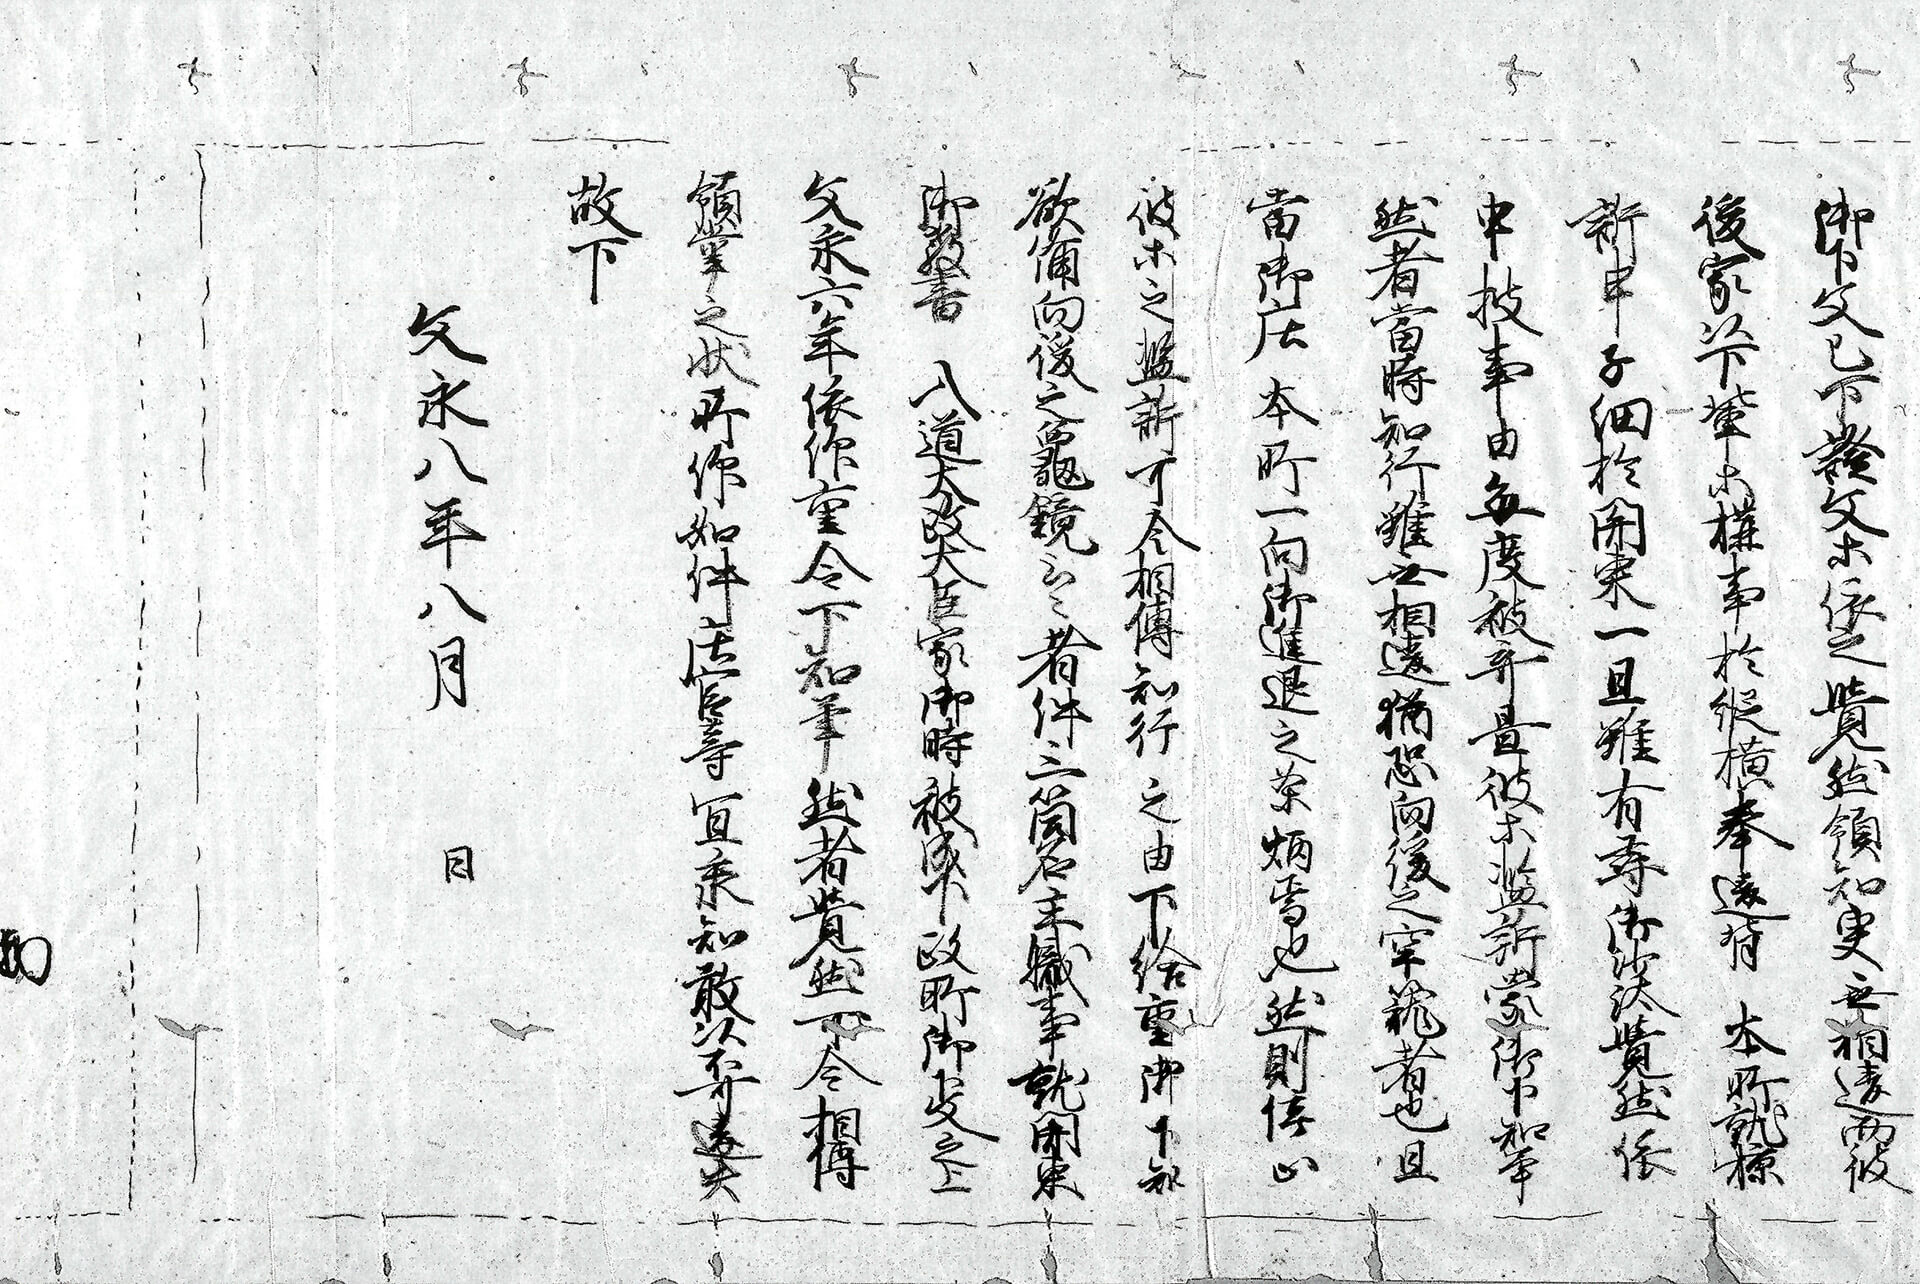 御下文已下證文等依之貲然領知更無相違而彼
後家以下輩等構事於縦横奉違背 本所就掠
新申子細於關東一旦雖有尋御沙汰貲然依
申披事由每度被弃置彼等濫訴蒙御下知畢
然者當時知行雖無相違猶恐向後之牢籠者也且
當御庄 本所一向御進退之条炳焉也然則停止
彼等之濫訴可令相傳知行之由下給重御下知
欲備向後之龜鏡云々者件三箇名主職事就關東
御教書 入道太政大臣家御時被成下政所御下文之上
文永六年依仰重令下知畢然者貲然可令相傳
領掌之状所仰如件庄官等宜承知敢以不可違失
故下
文永八年八月 日